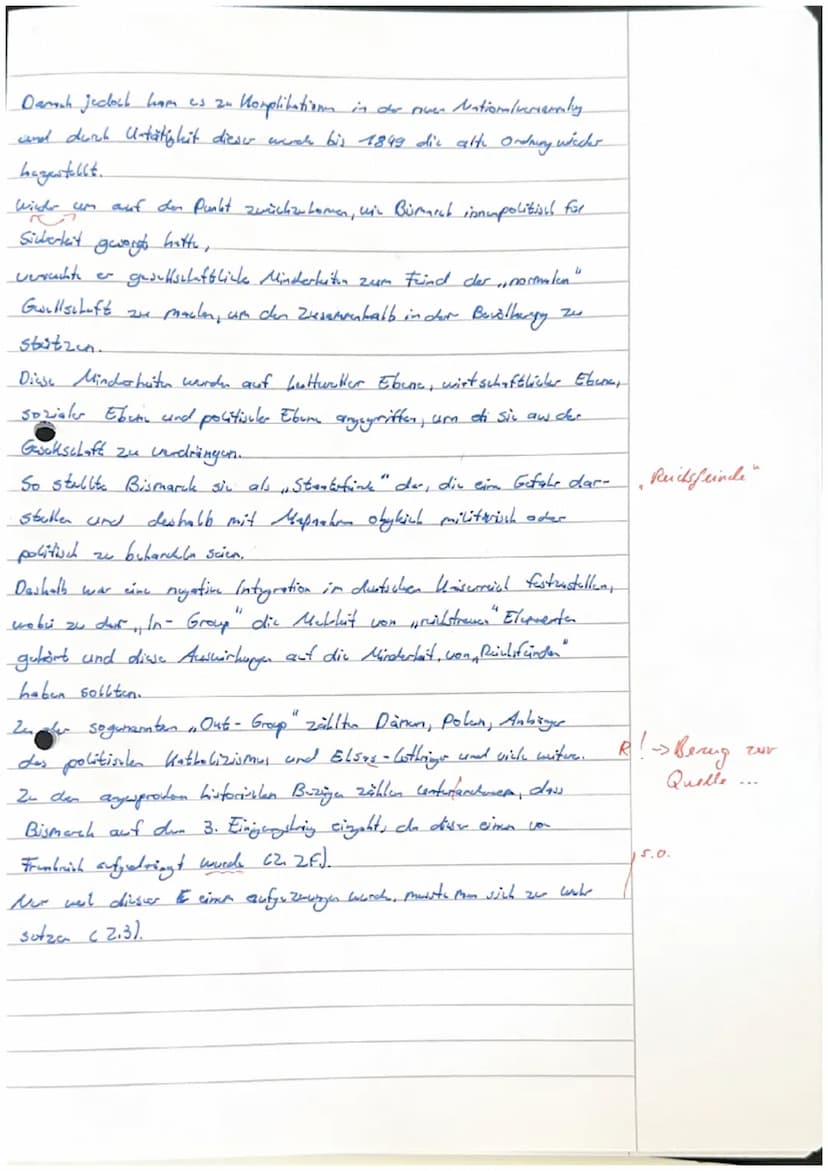 Danach jedoch kam es zu Komplikationen in der neuen Nationalversammlung
und durch Untätigkeit dieser wurde bis 1849 die alte Ordnung wieder
hergestellt.
Wieder um auf den Punkt zurückzukommen, wie Bismarck innenpolitisch für
Sicherheit gesorgt hatte,
versuchte er gesellschaftliche Minderheiten zum Feind der „normalen"
Gesellschaft zu machen, um den Zusammenhalb in der Bevölkerung zu
stützen.
Diese Minderheiten wurden auf kultureller Ebene, wirtschaftlicher Ebene,
sozialer Ebene und politischer Ebene angegriffen, um sie aus der
Gesellschaft zu verdrängen.
So stellte Bismarck sie als „Staatsfeinde" dar, die eine Gefahr dar-
stellen und deshalb mit Maßnahmen obgleich militärisch oder
politisch zu behandeln seien.
„Reichsfeinde"
Deshalb war eine negative Integration im deutschen Kaiserreich festzustellen,
wobei zu der „In-Group" die Mehrheit von „reichstreuen" Elementen
gehört und diese Auswirkungen auf die Minderheit, von „Reichsfeinden"
haben sollten.
Zu der sogenannten „Out-Group" zählten Dänen, Polen, Anhänger
des politischen Katholizismus und Elsass-Lothringer und viele weitere.
R! → Bezug zur
Quelle ...
Zu den angesprochen historischen Bezügen zählen unteranderem, dass
Bismarck auf den 3. Einigungskrieg eingeht, da dieser einen von
Frankreich aufgedrängt wurde (Z. 2f).
s.o.
Nur weil dieser einem aufgezwungen wurde, musste man sich zur wehr
setzen (Z.3).